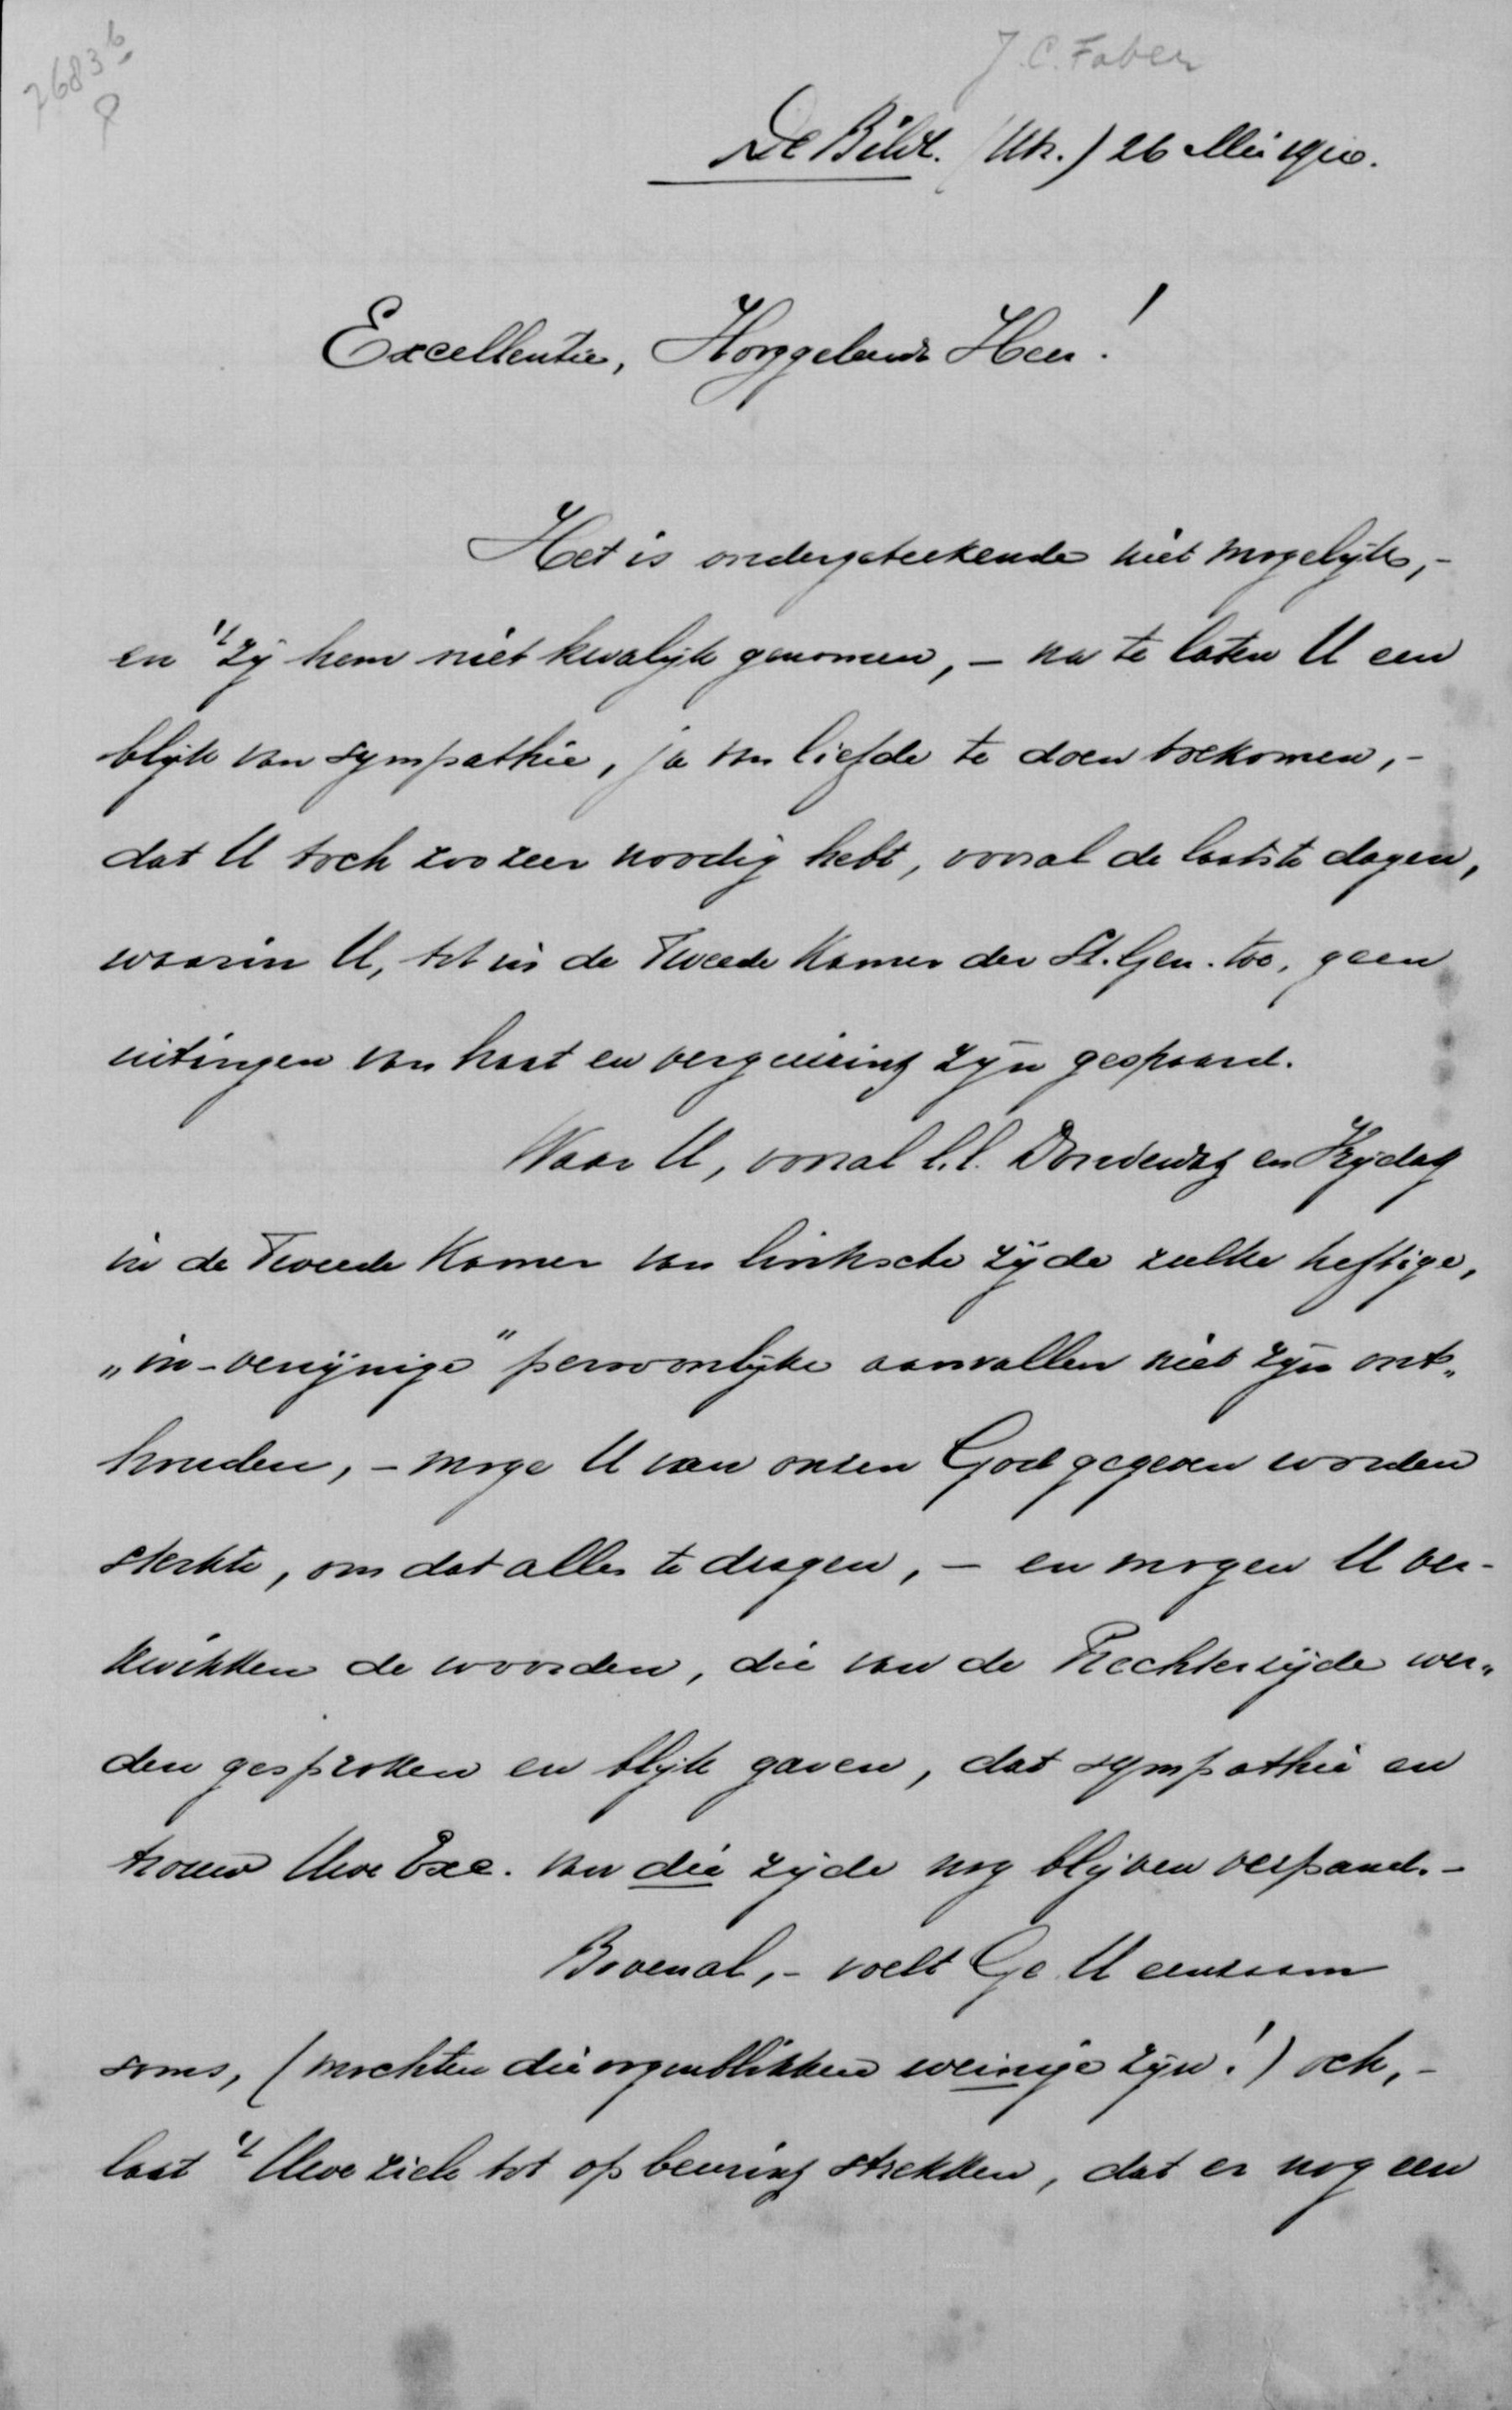 7683 b
J. C. Faber
De Bildt. (Utr.) 26 Mei 1910.
Excellentie, Hooggeleerde Heer!
Het is ondergeteekende niet mogelijk,-
en 't zij hem niet kwalijk genomen, - na te laten U een
blijk van sympathie, ja van liefde te doen toekomen,-
dat U toch zoozeer noodig hebt, vooral de laatste dagen,
waarin U, tot in de Tweede Kamer der St. Gen. toe, geen
uitingen van haat en verguizing zijn gespaard.
Waar U, vooral l.l. Donderdag en Vrijdag
in de Tweede Kamer van linksche zijde zulke heftige,
„in-venijnige" persoonlijke aanvallen niet zijn ont„
houden, - moge U van onzen God gegeven worden
sterkte, om dat alles te dragen, - en mogen U ver-
kwikken de woorden, die van de Rechterzijde wer„
den gesproken en blijk gaven, dat sympathie en
trouw Uwe Exc. van die zijde nog blijven verpand.-
Bovenal,- voelt Ge U eenzaam
soms, (mochten die oogenblikken weinige zijn!) och,-
laat 't Uwe ziele tot opbeuring strekken, dat er nog een